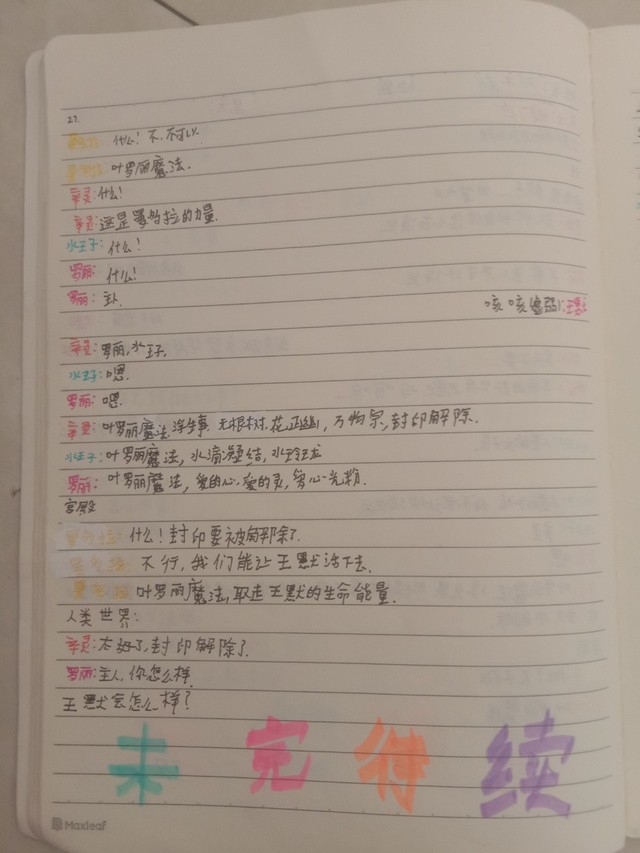 27.
什么！不，不可以.
叶罗丽魔法.
辛灵:什么!
辛灵:这是曼多拉的力量.
水王子:什么!
罗丽:什么!
罗丽:主人. 王默:咳咳
辛灵:罗丽,水王子.
水王子:嗯.
罗丽:嗯.
辛灵:叶罗丽魔法,浮生事,无根树,花正幽,万物泉,封印解除.
水王子:叶罗丽魔法,水滴凝结,水玲珑龙
罗丽:叶罗丽魔法,爱的心,爱的灵,爱心光粉.
宫殿
曼多拉:什么!封印要被解除了.
曼多拉:不行,我们能让王默活下去.
曼多拉:叶罗丽魔法,取走王默的生命能量.
人类世界:
辛灵:太好了,封印解除了.
罗丽:主人,你怎么样.
王默会怎么样?
未完待续
Maxleaf